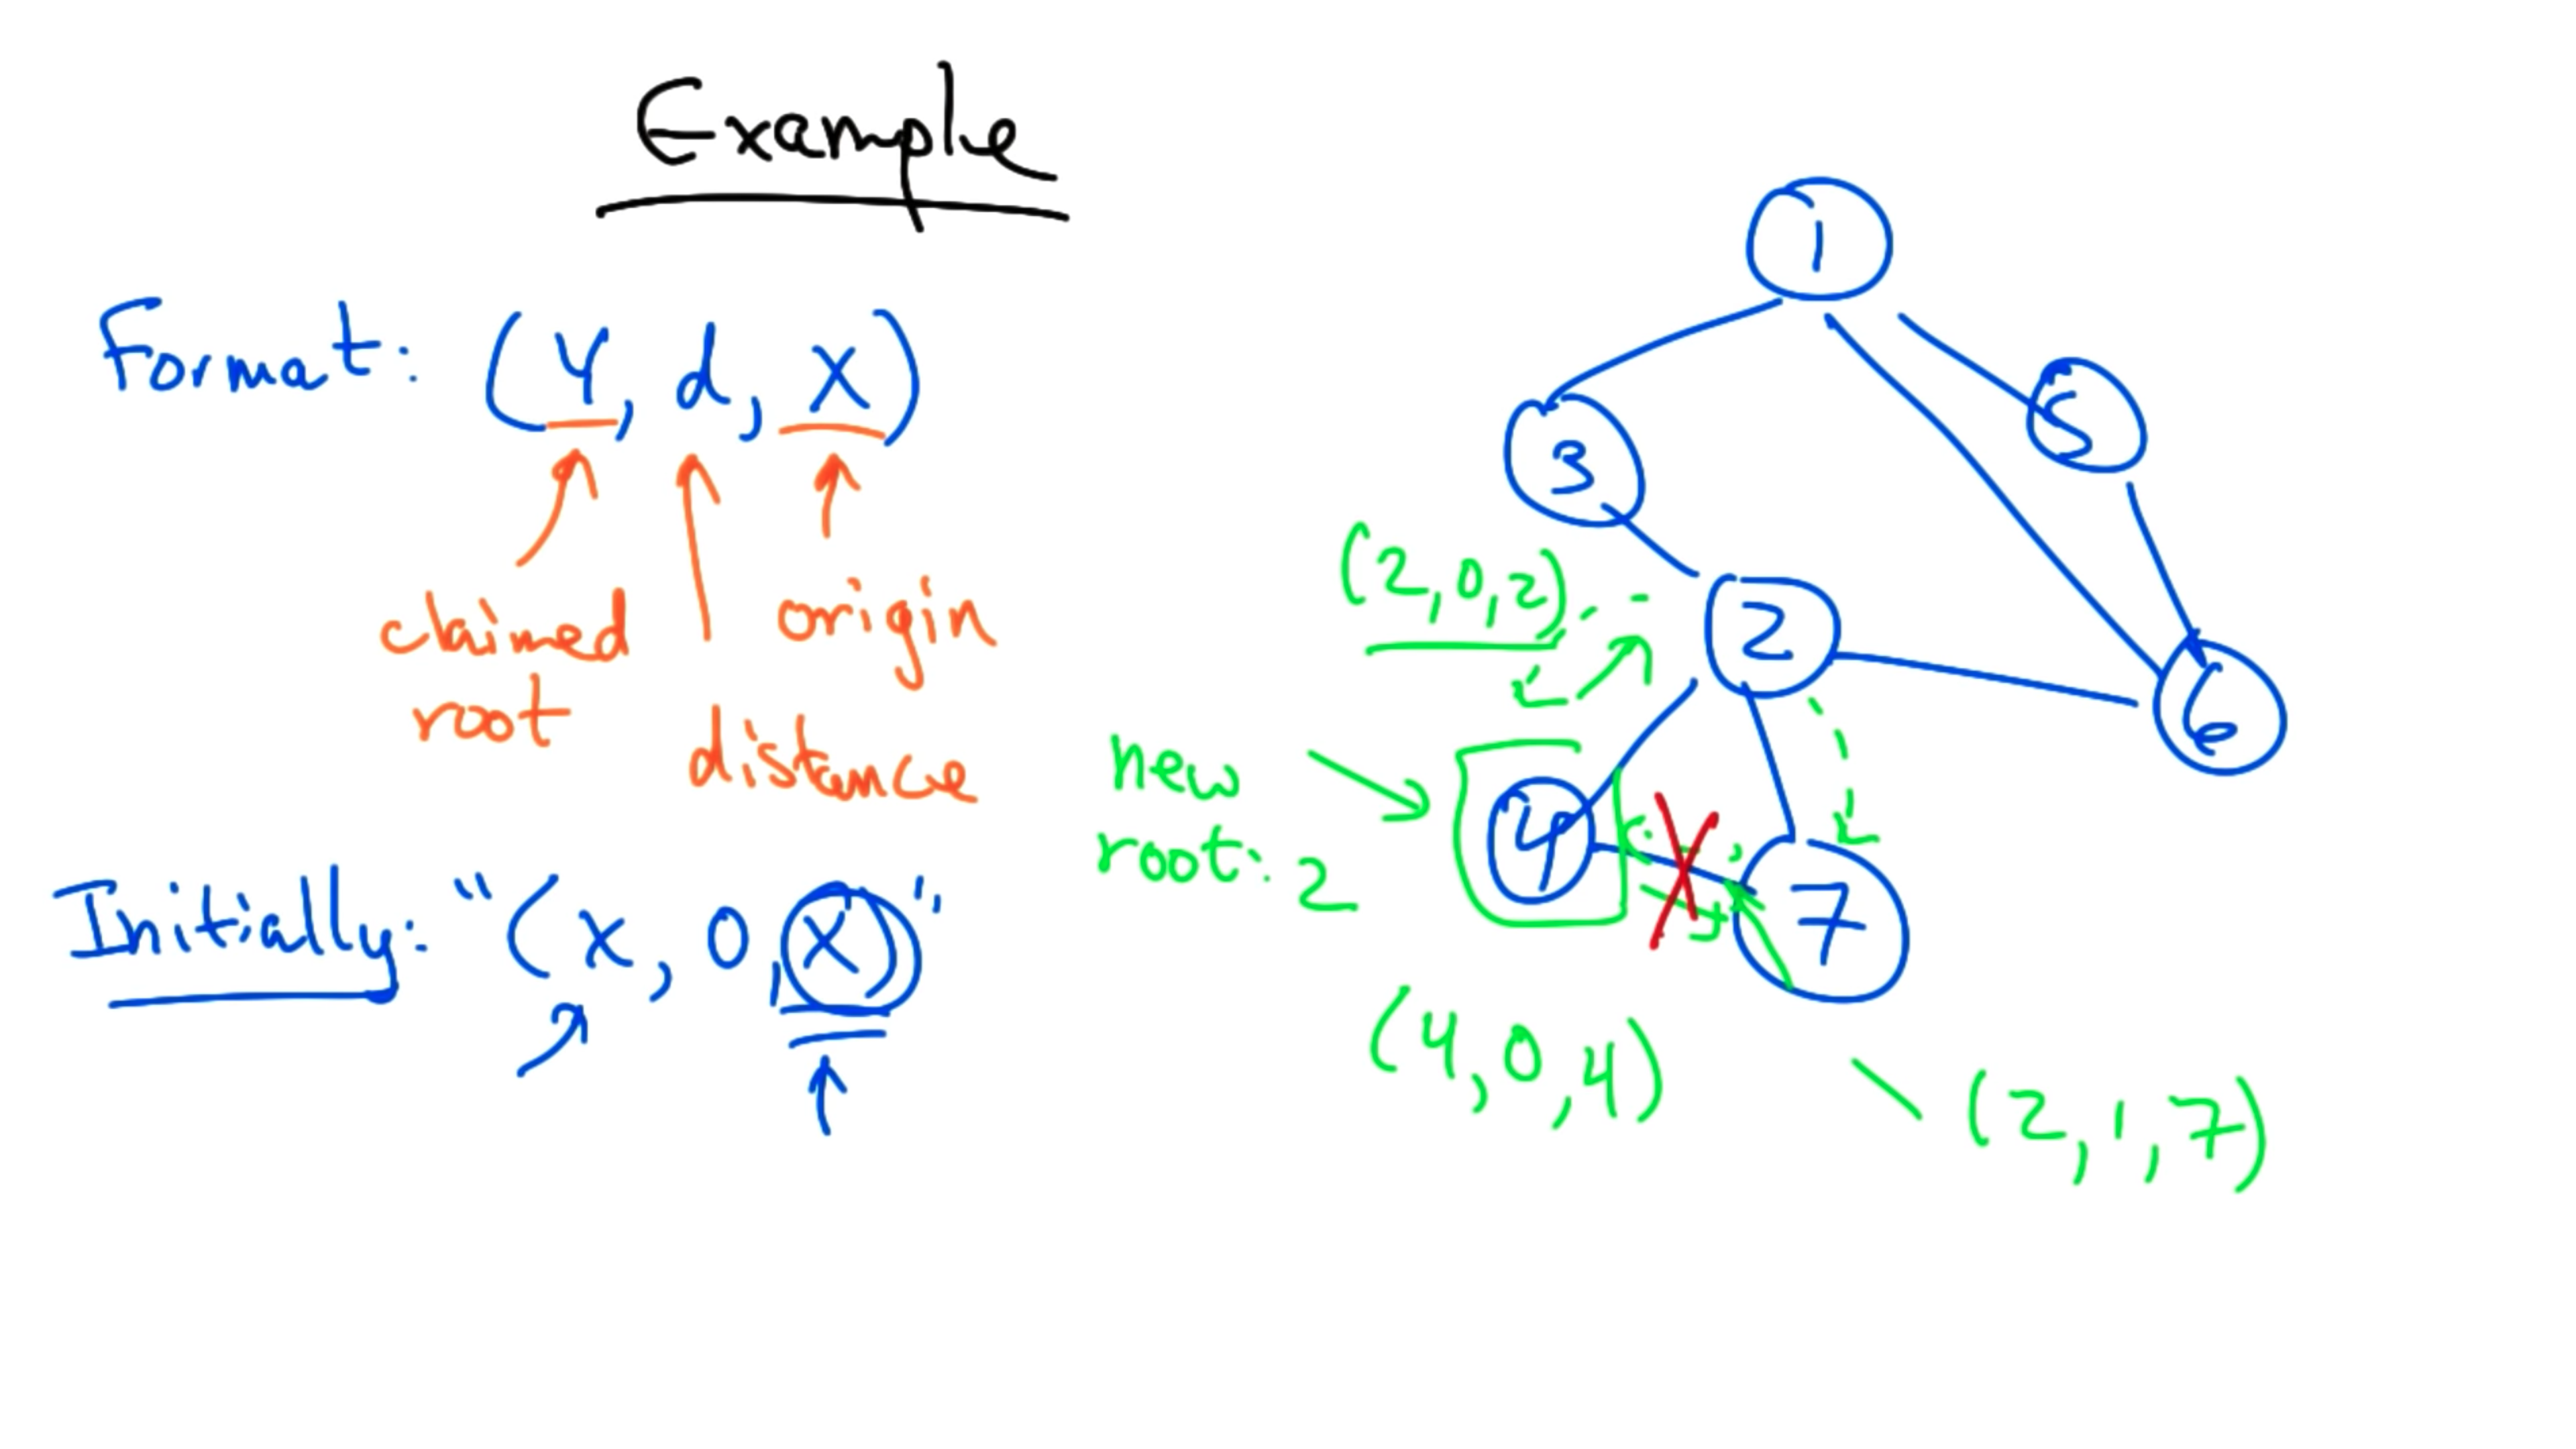 Example
Format: (Y, d, X)
claimed root
distance
origin
Initially: "(x, 0, x)"
1
3
5
(2,0,2)
2
6
new root: 2
4
7
(4,0,4)
(2,1,7)